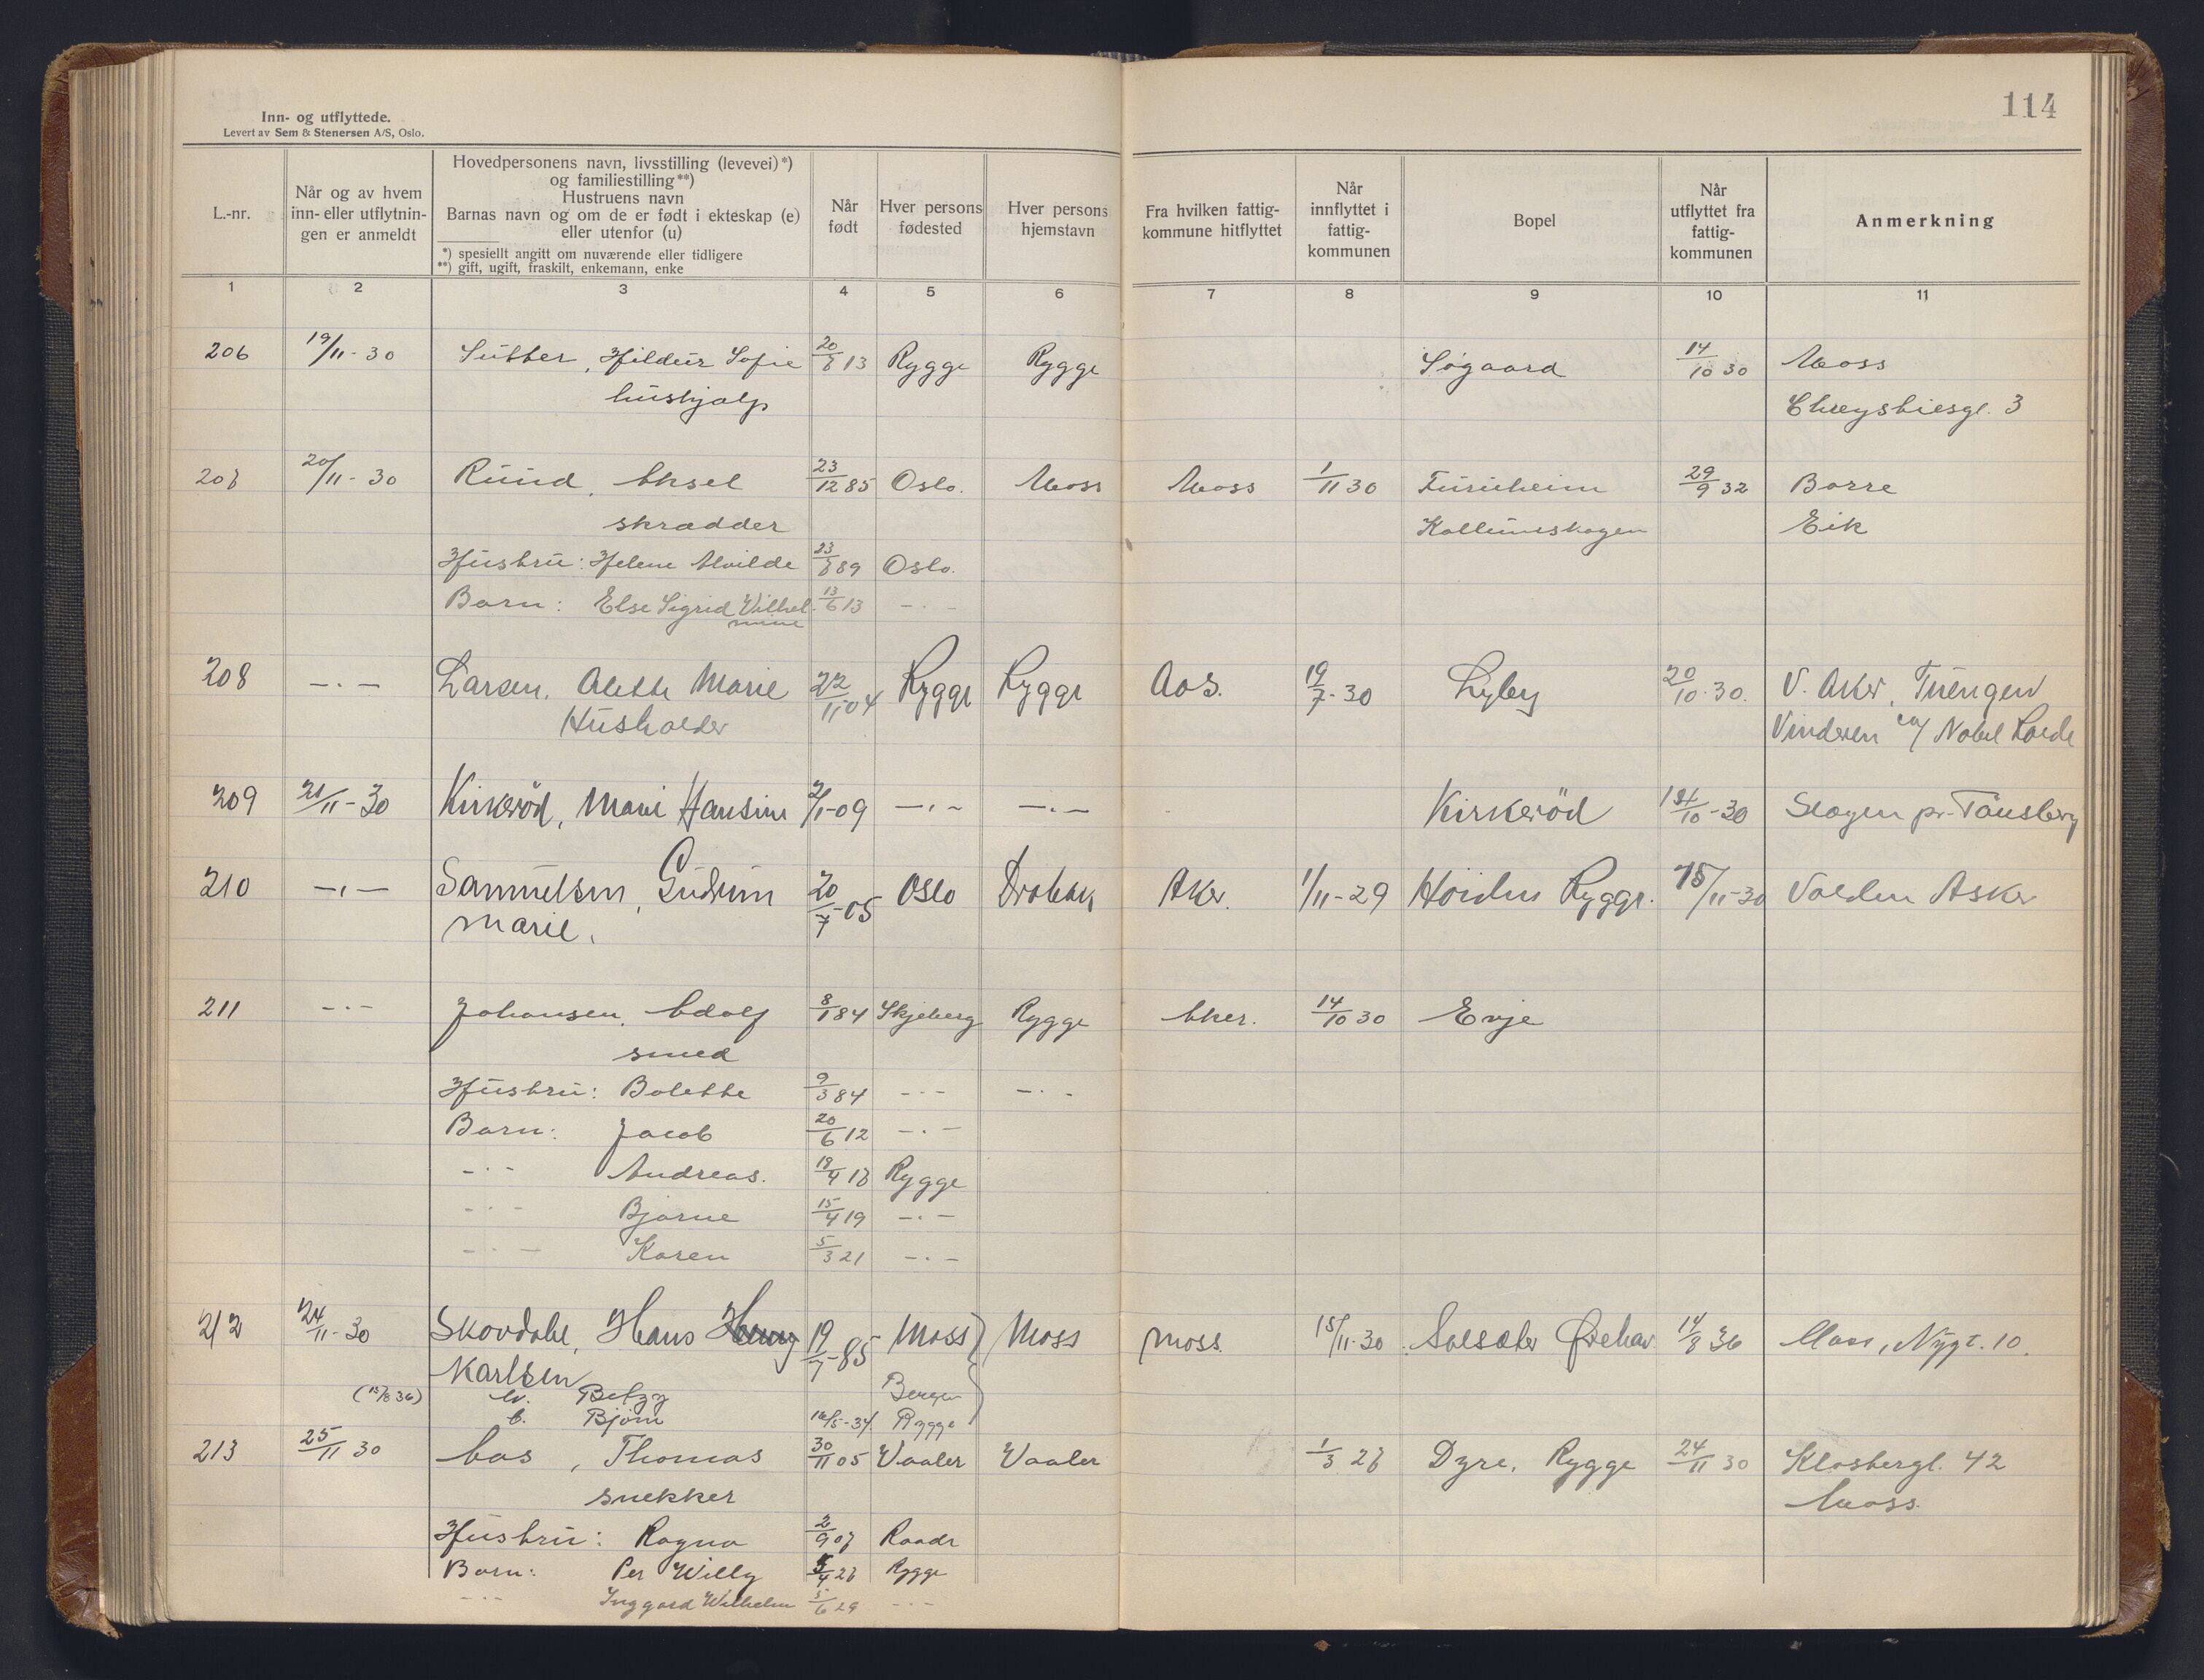 114
Inn- og utflyttede.
Levert av Sem & Stenersen A/S, Oslo.
L.-nr.
Når og av hvem
inn- eller utflytnin-
gen er anmeldt
Hovedpersonens navn, livsstilling (levevei)*)
og familiestilling**)
Hustruens navn
Barnas navn og om de er født i ekteskap (e)
eller utenfor (u)
*) spesielt angitt om nuværende eller tidligere
**) gift, ugift, fraskilt, enkemann, enke
Når
født
Hver persons
fødested
Hver persons
hjemstavn
Fra hvilken fattig-
kommune hitflyttet
Når
innflyttet i
fattig-
kommunen
Bopel
Når
utflyttet fra
fattig-
kommunen
Anmerkning
1 2 3 4 5 6 7 8 9 10 11
206 19/11-30 Sutter, Hildur Sofie 20/8 13 Rygge Rygge Søgaard 14/10 30 Moss
hushjalp 3
207 20/11-30 Ruud, Aksel 23/12 85 Oslo. Moss Moss 1/11 30 Furuheim 29/9 32 Borre
skrædder Eik
Hustru: Helene Alvilde 23/8 89 Oslo.
Barn: Else Sigrid Wilhel- 13/6 13 -.-
mine
208 -.- Larsen, Alette Marie 22/11-04 Rygge Rygge Aas. 19/7-30 Lyby 20/10-30. V. Aker, Tuengen
Husholder Vinderen
209 21/11-30 Kirkerød, Marie Hansine 2/1-09 -.- -.- Kirkerød /10-30 Slagen pr. Tønsberg
210 -.- Samuelsen, Gudrun 20/7-05 Oslo Drøbak Aker. 1/11-29 Høiden Rygge. 15/11-30 Valden Asker
Marie.
211 -.- Johansen, Adolf 8/1 84 Skjeberg Rygge Aker. 14/10 30 Evje
smed
Hustru: Bolette 9/3 84 -.- -.-
Barn: Jacob 20/6 12 -.-
-.- Andreas. 18/4 17 Rygge
-.- Bjarne 15/4 19 -.-
-.- Karen 5/3 21 -.-
212 24/11-30 Skovdahl, Hans 19/7-85 Moss Moss Moss. 15/11-30 Solsæter Ørehav 14/8 36 Moss, Nygt. 10.
Karlsen
(15/8 36) Betzy Bergen
b. Bjørn 16/5-34. Rygge
213 25/11 30 Aas, Thomas 30/11 05 Vaaler Vaaler 1/3 27 Dyre, Rygge 24/11 30 Klosbergt. 42
snekker Moss.
Hustru: Ragna 2/9 07 Raade
Barn: Per Willy 5/4 27 Rygge
-.- Inggard Wilhelm 5/6 29 -.-